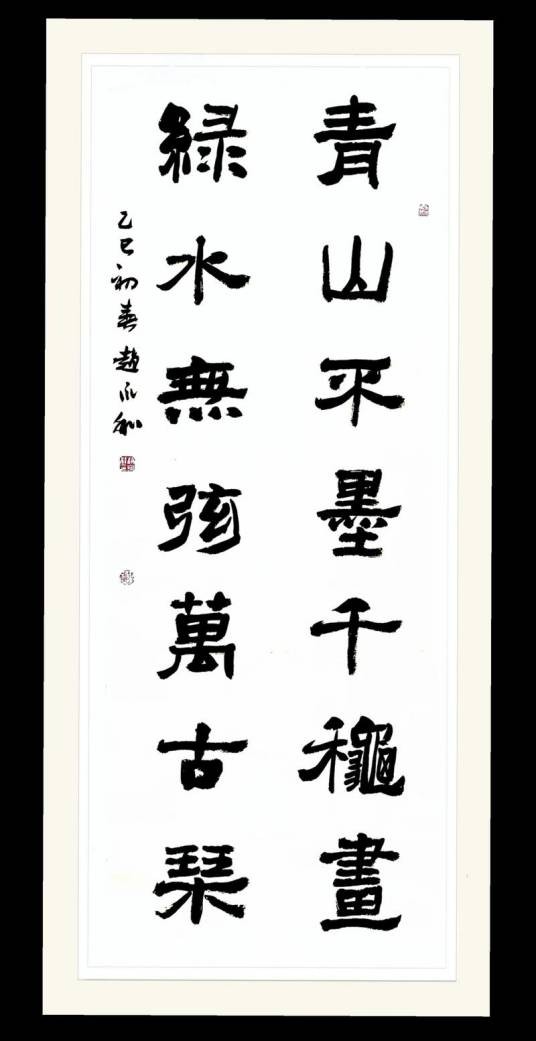 青山不墨千龝畫
綠水無弦萬古琴
乙巳初春趙